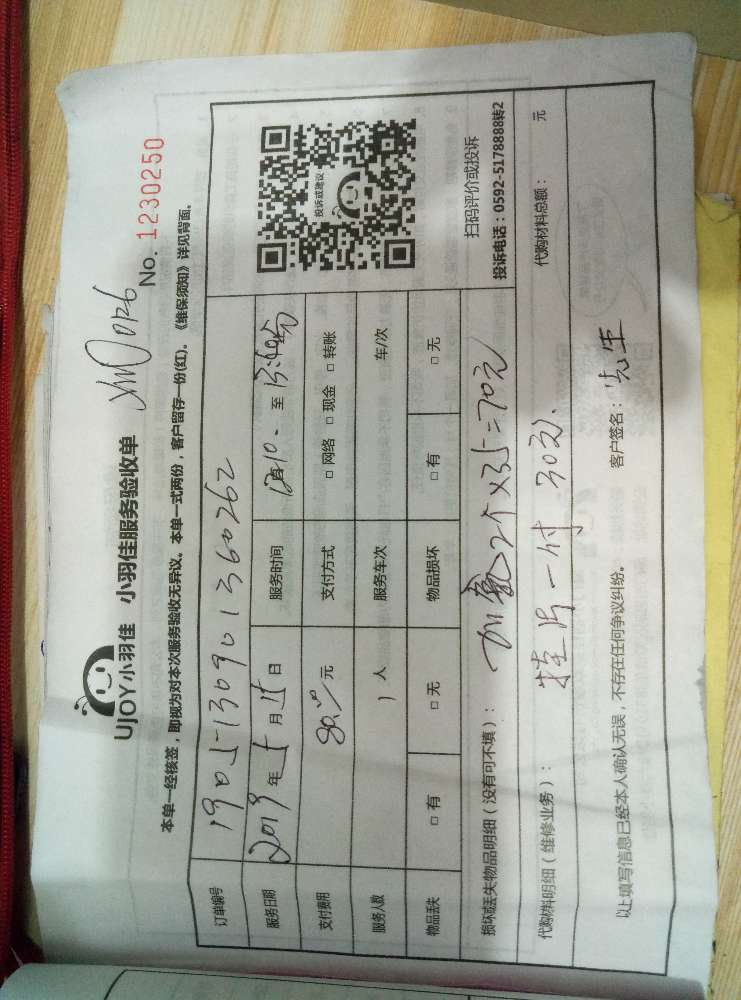 UJOY小羽佳 小羽佳服务验收单
No. 1230250
本单一经核签，即视为对本次服务验收无异议。本单一式两份，客户留存一份(红)。《维保须知》详见背面。
订单编号 1905130901360262
服务日期 2019年5月15日 服务时间 至
支付费用 80 元 支付方式 □ 网络 □ 现金 □ 转账
服务人数 1 人 服务车次 车/次
物品丢失 □ 有 □ 无 物品损坏 □ 有 □ 无
投诉或建议
扫码评价或投诉
投诉电话：0592-5178888转2
损坏或丢失物品明细（没有可不填）： 2个×35=70元
代购材料明细（维修业务）： 挂片一付 30元、 代购材料总额： 元
以上填写信息已经本人确认无误，不存在任何争议纠纷。 客户签名： 先生